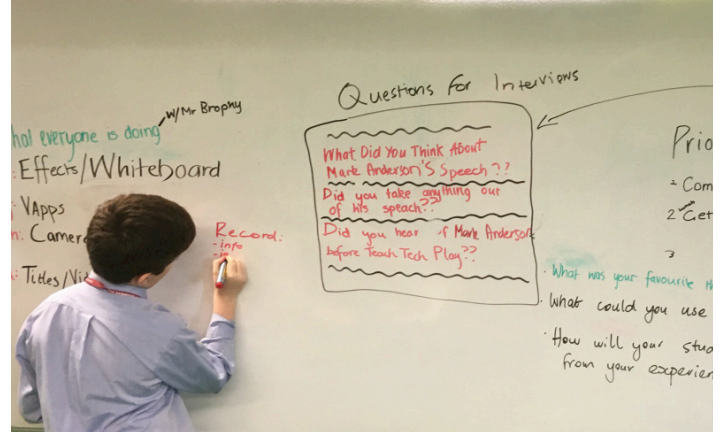 w/Mr Brophy
everyone is doing
Effects/Whiteboard
VApps
Camera
Titles/Vi
Record:
- info
Questions for Interviews
What Did You Think About
Mark Anderson's Speech ??
Did you take anything out
of his speach??
Did you hear of Mark Anderson
before Teach Tech Play??
Prio
1 Com
2 Get
3
· What was your favourite
· What could you use
· How will your stud
from your experien